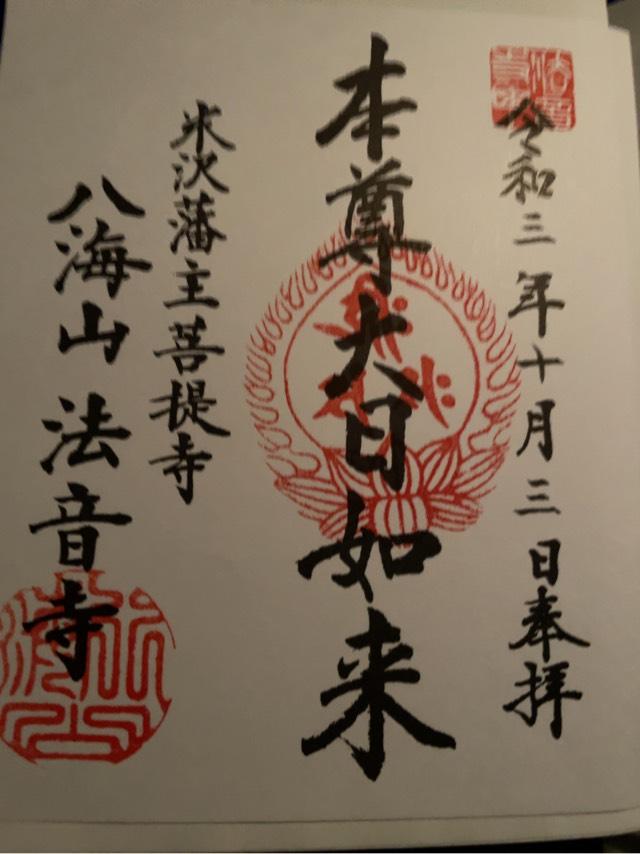 令和三年十月三日奉拝
本尊大日如来
米沢藩主菩提寺
八海山 法音寺